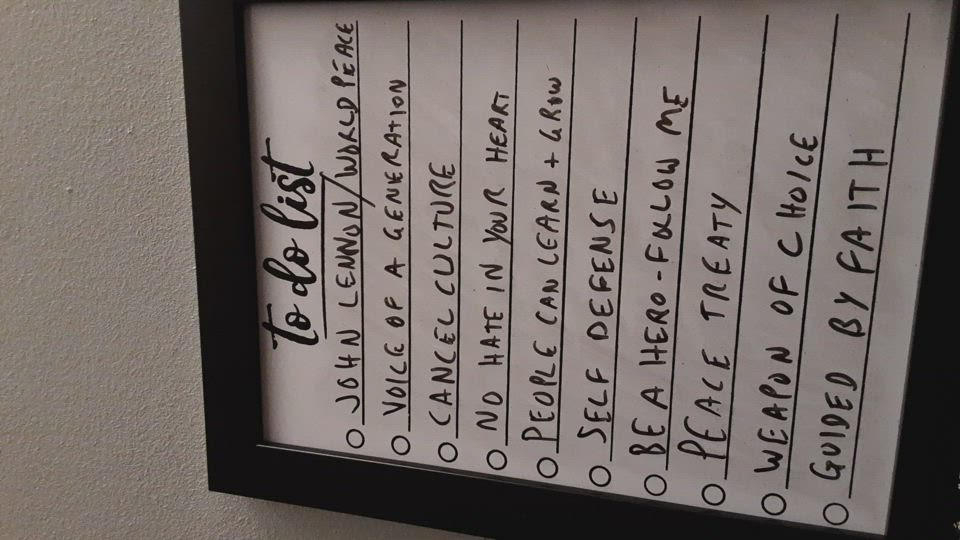 to do list
JOHN LENNON/WORLD PEACE
VOICE OF A GENERATION
CANCEL CULTURE
NO HATE IN YOUR HEART
PEOPLE CAN LEARN + GROW
SELF DEFENSE
BE A HERO-FOLLOW ME
PEACE TREATY
WEAPON OF CHOICE
GUIDED BY FAITH